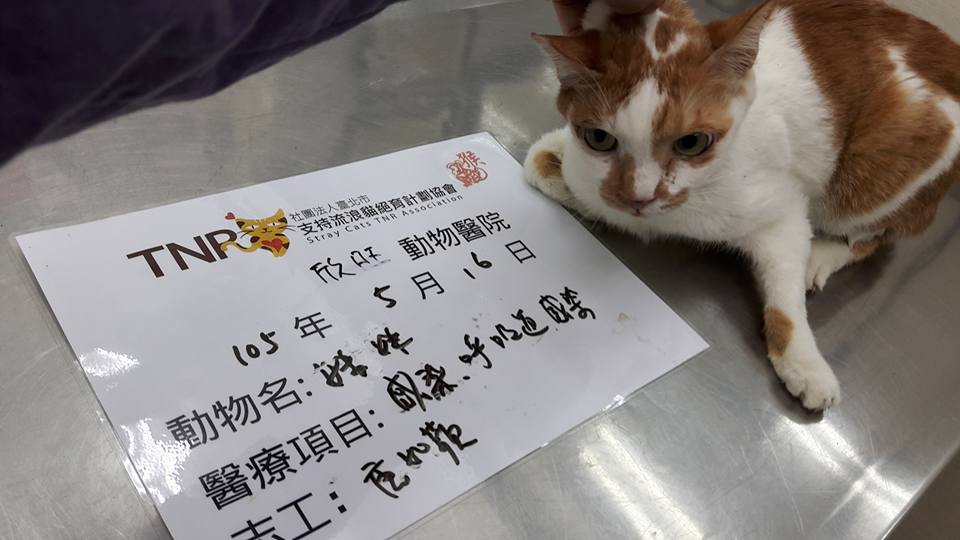 TNR
社團法人臺北市
支持流浪貓絕育計劃協會
Stray Cats TNR Association
欣旺 動物醫院
105 年 5 月 16 日
動物名:
醫療項目: 感染、呼吸道感染
志工: